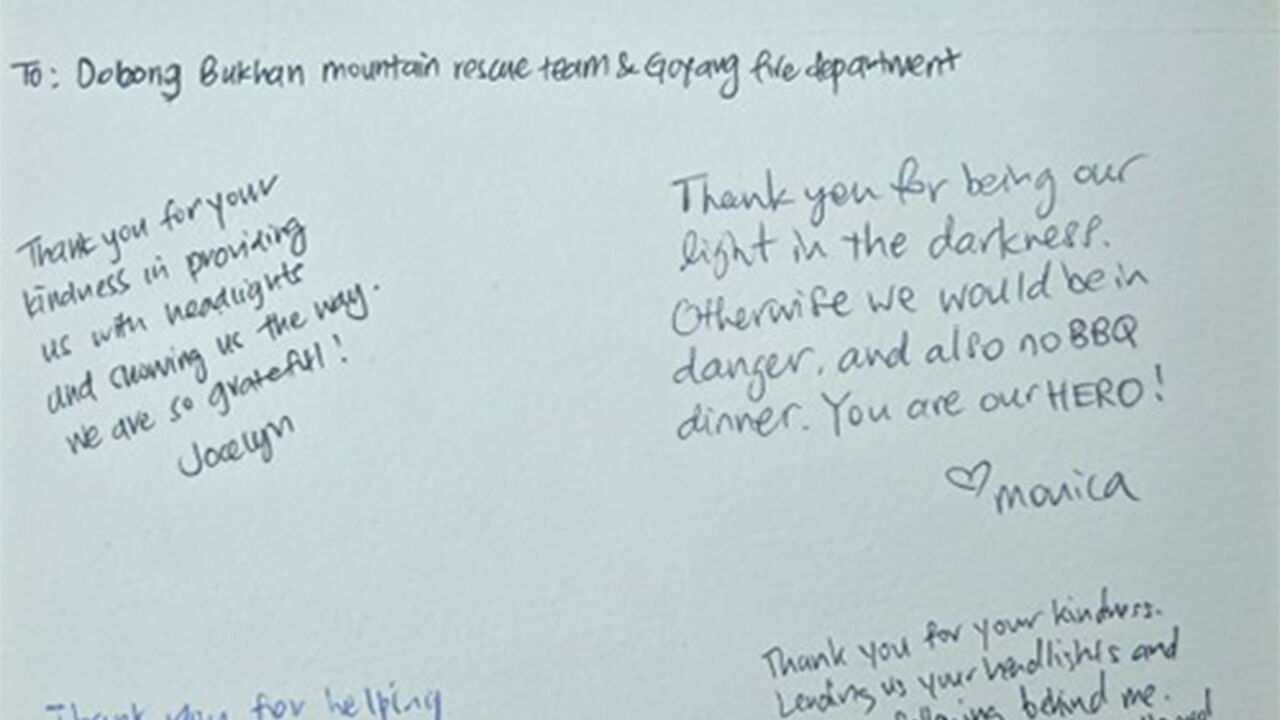 To: Dobong Bukhan mountain rescue team & Goyang fire department
Thank you for your
kindness in providing
us with headlights
and showing us the way.
we are so grateful!
Jocelyn
Thank you for being our
light in the darkness.
Otherwise we would be in
danger, and also no BBQ
dinner. You are our HERO!
♡monica
Thank you for helping
Thank you for your kindness.
Lending us your headlights and
following behind me.